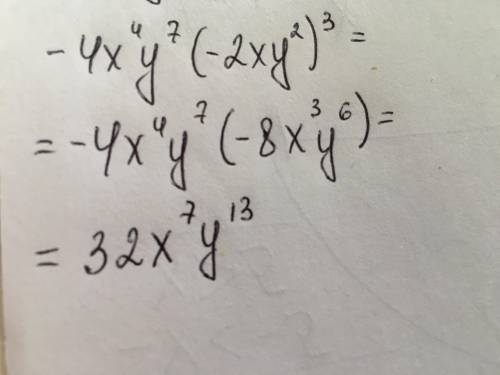 -4x⁴y⁷(-2xy²)³=
=-4x⁴y⁷(-8x³y⁶)=
=32x⁷y¹³